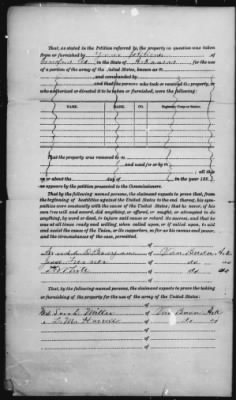 That, as stated in the Petition referred to, the property in question was taken
from or furnished by your petitioner of
Crawford Co in the State of Arkansas for the use
of a portion of the army of the United States, known as
and commanded by
and that the persons who took or received the property, or
who authorized or directed it to be taken or furnished, were the following:
NAME. RANK. CO. Regiment, Corps or Station.
That the property was removed to
and used for or by
all this
on or about the day of in the year 186
as appears by the petition presented to the Commissioners.
That by the following named persons, the claimant expects to prove that, from
the beginning of hostilities against the United States to the end thereof, his sym-
pathies were constantly with the cause of the United States; that he never, of his
own free will and accord, did anything, or offered, or sought, or attempted to do
anything, by word or deed, to injure said cause or retard its success, and that he
was at all times ready and willing when called upon, or if called upon, to aid
and assist the cause of the Union, or its supporters, so far as his means and power,
and the circumstances of the case, permitted.
of
of Van Buren Ark
of do do
of do do
of
of
That by the following named persons, the claimant expects to prove the taking
or furnishing of the property for the use of the army of the United States:
of
Sarah Miller of Van Buren Ark
of do do
of
of
of